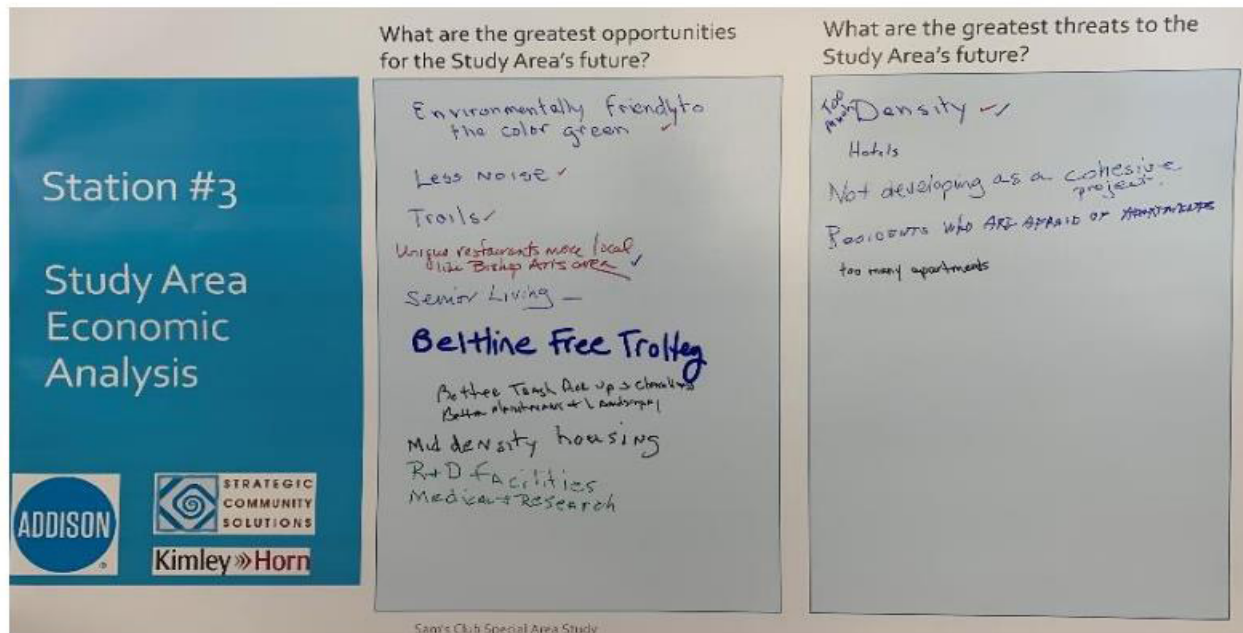 Station #3
Study Area
Economic
Analysis
ADDISON
STRATEGIC
COMMUNITY
SOLUTIONS
Kimley»Horn
What are the greatest opportunities
for the Study Area's future?
Environmentally friendly to
the color green ✓
Less Noise ✓
Trails ✓
Unique restaurants more local
like Bishop Arts area ✓
Senior Living —
Beltline Free Trolley
Better Trash Pick up &
Better Maintenance + Landscaping
Mid density housing
R+D facilities
Medical + Research
Sam's Club Special Area Study
What are the greatest threats to the
Study Area's future?
Too much Density ✓✓
Hotels
Not developing as a cohesive
project.
RESIDENTS WHO ARE AFRAID OF APARTMENTS
too many apartments